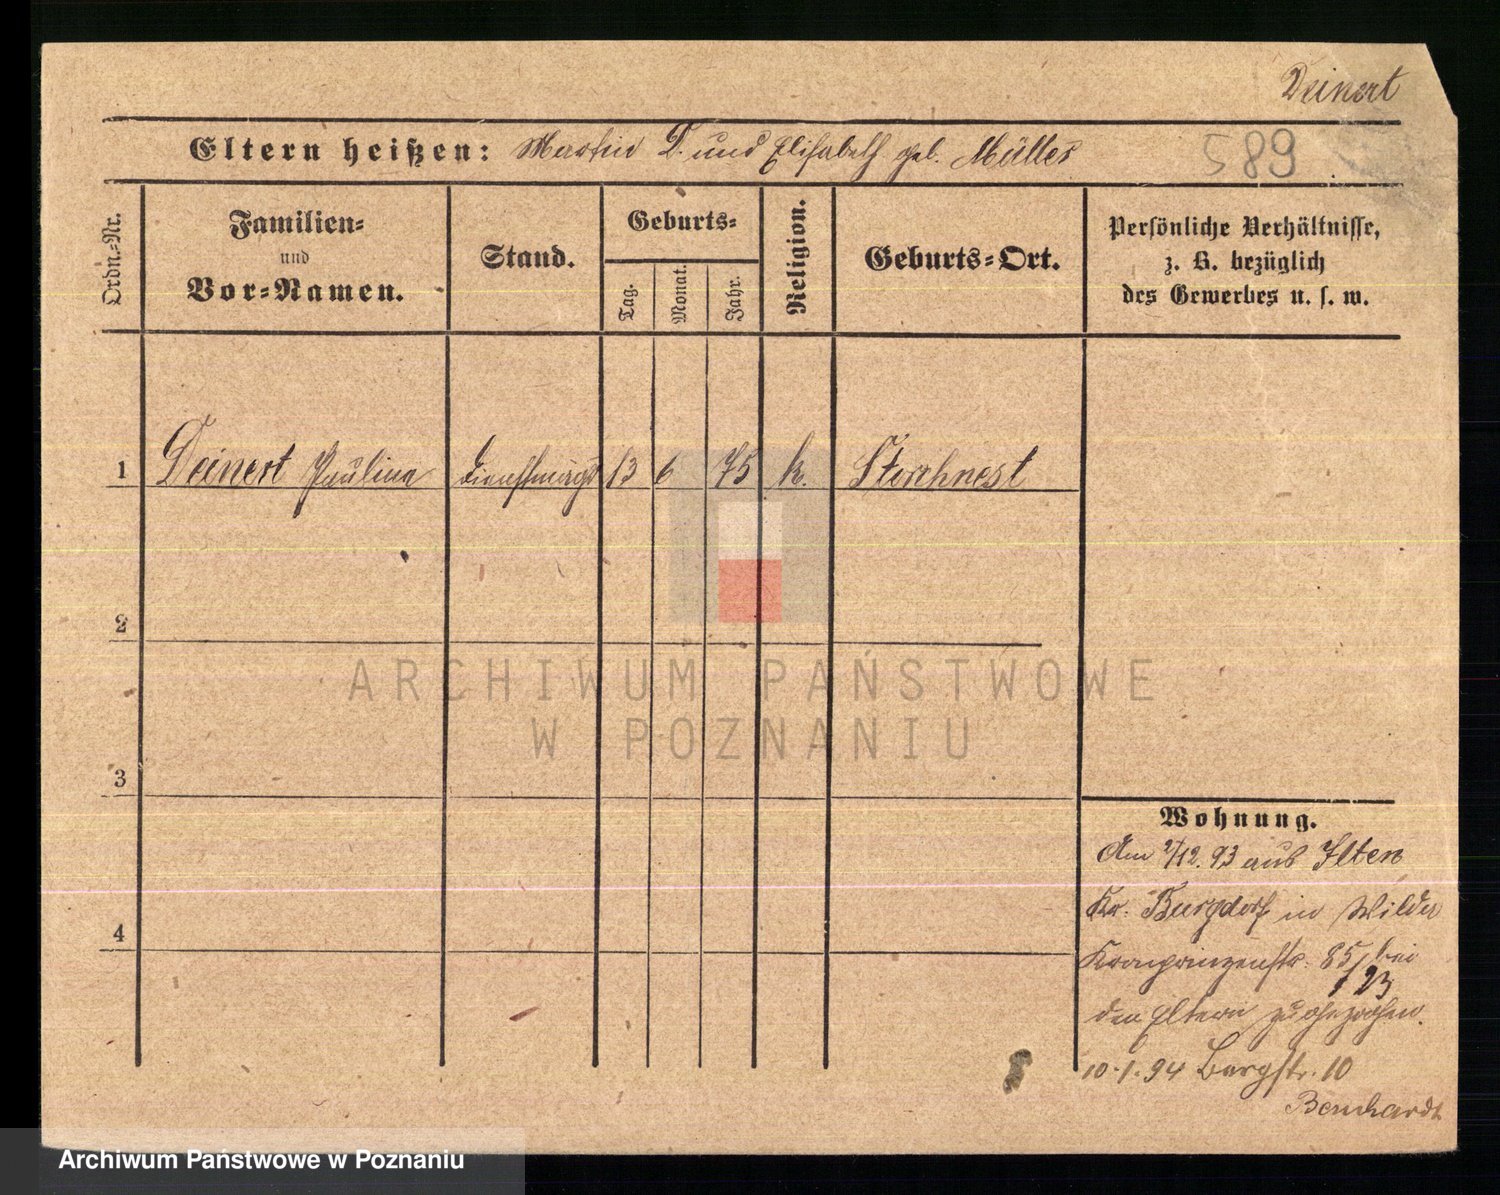 Deinert
Eltern heißen: Martin D. und Elisabeth geb. Müller
589
Ordn.-Nr.
Familien-
und
Vor-Namen.
Stand.
Geburts-
Tag.
Monat.
Jahr.
Religion.
Geburts-Ort.
Persönliche Verhältnisse,
z. B. bezüglich
des Gewerbes u. s. w.
1 Deinert Paulina Dienstmagd 13 6 75 k. Storchnest
2
3
4
ARCHIWUM PAŃSTWOWE
W POZNANIU
Wohnung.
Am 2/12. 93 aus Ilten
Kr. Burgdorf in Wilda
Kronprinzenstr. 85/ bei
123
den Eltern zugezogen.
10.1.94 Bergstr. 10
Bernhardt
Archiwum Państwowe w Poznaniu